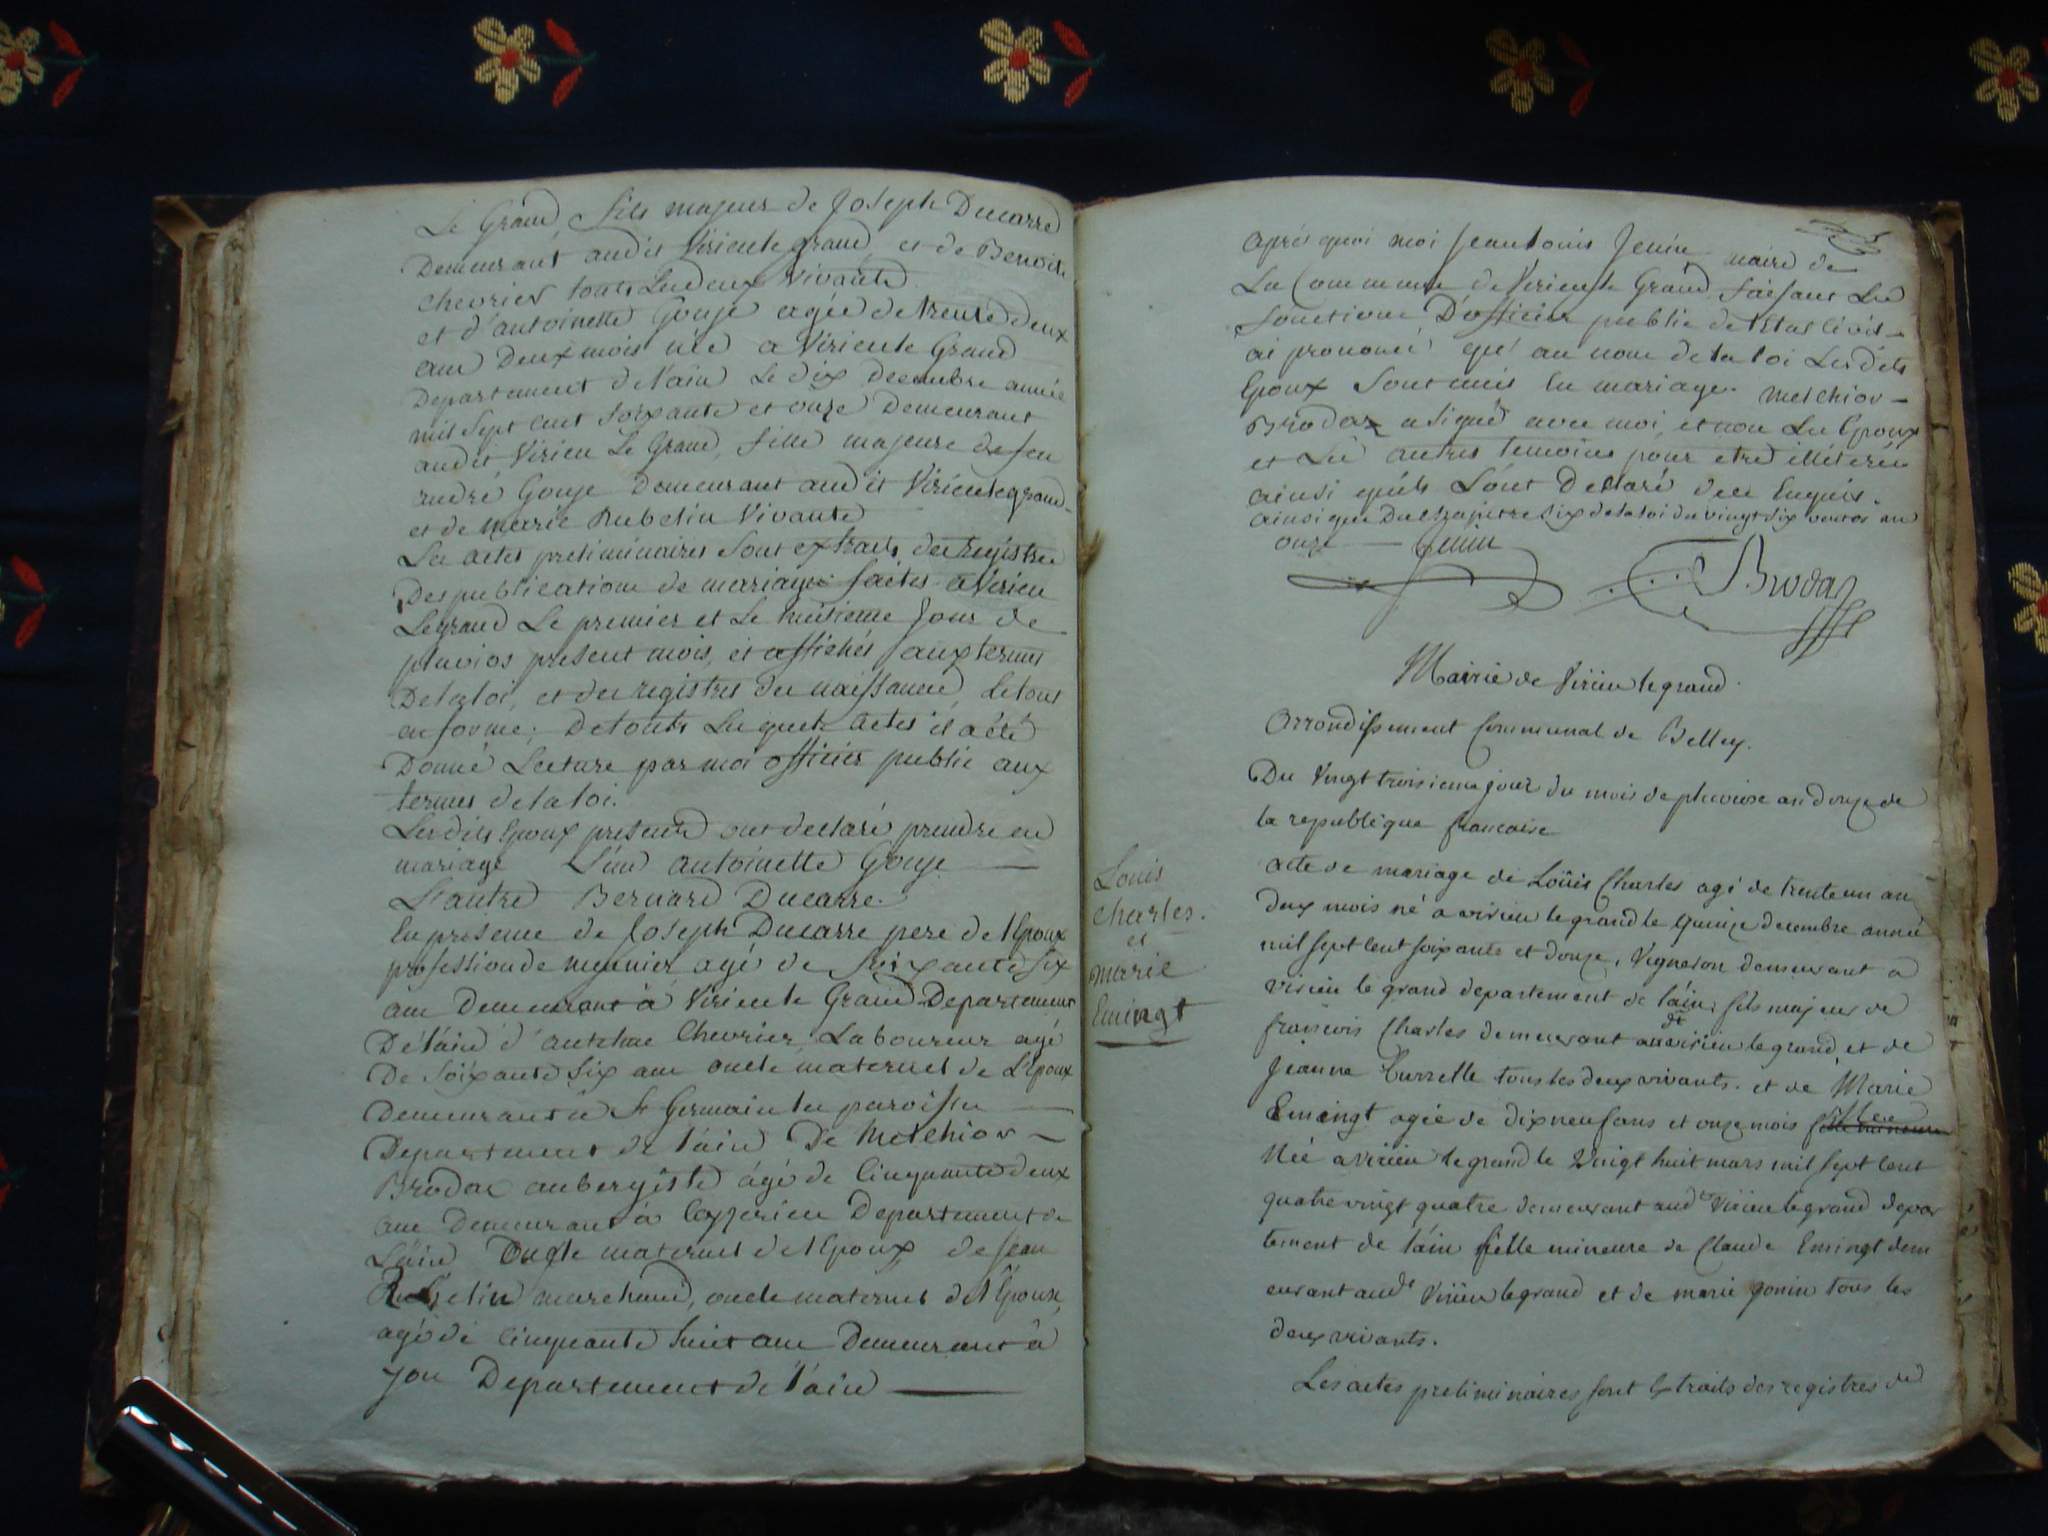 Le Grand, fils majeur de Joseph Ducarre
Demeurant audit Virieu le grand, et de Benoite
Chevrier touts Les deux Vivants.
et d'antoinette Gouje agée de trente deux
ans Deux mois née a Virieu le Grand
Departement de l'ain Le dix Decembre année
mil sept cent soixante et onze Demeurant
audit Virieu Le Grand, fille majeure de feu
andré Gouje Demeurant audit Virieu le grand
et de Marie Rubelin Vivante
Les actes preliminaires sont extraits des registres
Des publications de mariage faites a Virieu
Le grand Le premier et Le huitieme Jour de
pluvios present mois, et affichés aux termes
De la loi, et des registres des naissances, le tout
en forme; De touts Lesquels actes il a été
Donné Lecture par moi officier public aux
termes de la loi.
Lesdits Epoux presents ont declaré prendre en
mariage L'un antoinette Gouje
L'autre Bernard Ducarre.
En presence de Joseph Ducarre pere de l'Epoux
profession de meunier agé de soixante six
ans Demeurant à Virieu le Grand Departement
De l'ain d'antelme Chevrier, Laboureur agé
De soixante six ans oncle maternel de L'Epoux
Demeurant à St Germain les paroisses
Departement de l'ain De Melchior
Brodaz aubergiste âgé de Cinquante deux
ans Demeurant à Ceyzerieu Departement de
L'ain Oncle maternel de l'Epoux de Jean
Rubelin marchand, oncle maternel de l'Epouse,
agé de Cinquante huit ans Demeurant à
yon Departement de l'ain
après quoi moi Jean Louis Jenin maire de
La Commune de Virieu le Grand faisant Les
fonctions D'officier public de l'Etat Civil
ai prononcé qu' au nom de la loi Lesdits
Epoux sont unis En mariage. Melchior
Brodaz a signé avec moi, et non Les Epoux
et Les autres temoins pour etre illiterés
ainsi qu'ils L'ont Declaré de ce Enquis.
ainsi que Du chapitre six de la loi du vingt six ventos an
onze Jenin
Brodaz
Mairie de Virieu le grand.
Arrondissement Communal de Belley.
Du Vingt troisieme jour du mois de pluviose an douze de
la republique francaise
Louis
Charles.
et
Marie
Emingt
acte de mariage de Loüis Charles agé de trente un an
deux mois né a virieu le grand le quinze decembre année
mil sept cent soixante et douze, Vigneron demeurant a
virieu le grand departement de l'ain, fils majeur de
francois Charles demeurant audt virieu le grand, et de
Jeanne Curzelle tous les deux vivants. et de Marie
Emingt agée de dix neuf ans et onze mois fille mineure
Née a virieu le grand le Vingt huit mars mil sept cent
quatre vingt quatre demeurant audt Virieu le grand depar
tement de l'ain fille mineure de Claude Emingt dem
eurant audt Virieu le grand et de marie gonin tous les
deux vivants.
Les actes preliminaires sont Extraits des registres de